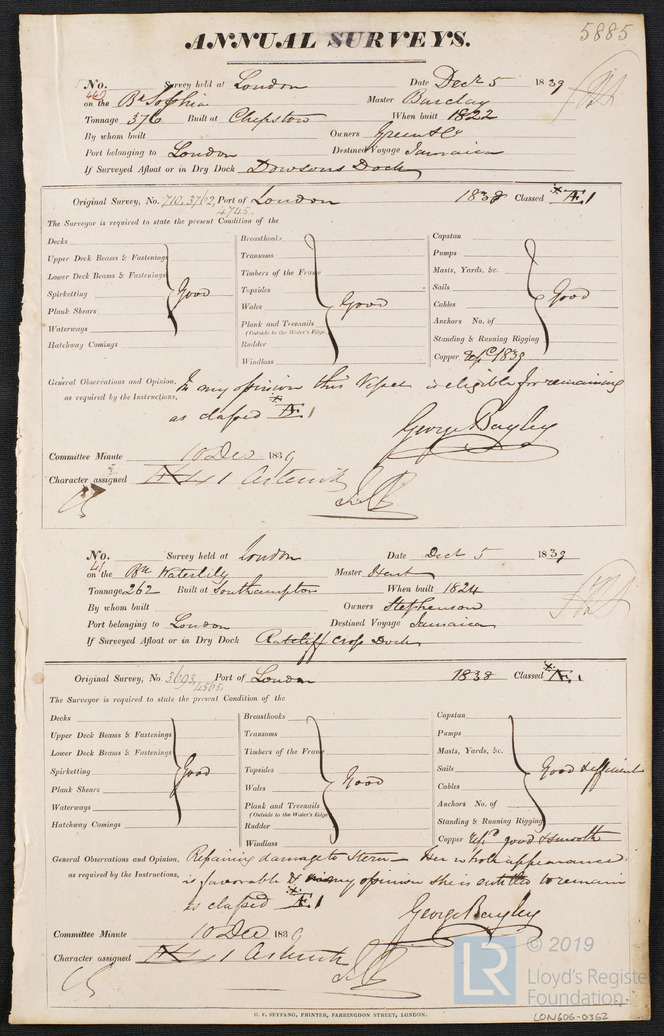 5885
ANNUAL SURVEYS.
No. 462 Survey held at London Date Decr 5 1839
on the Bn Sophia Master Barclay
Tonnage 376 Built at Chepstow When built 1822
By whom built Owners Green & Co
Port belonging to London Destined Voyage Jamaica
If Surveyed Afloat or in Dry Dock Dowsons Dock
Original Survey, No. 710, 3762, 4745. Port of London 1838 Classed Æ 1
The Surveyor is required to state the present Condition of the
Decks
Upper Deck Beams & Fastenings
Lower Deck Beams & Fastenings
Spirketting Good
Plank Shears
Waterways
Hatchway Comings
Breasthooks
Transoms
Timbers of the Frame
Topsides
Wales Good
Plank and Treenails
(Outside to the Water's Edge)
Rudder
Windlass
Capstan
Pumps
Masts, Yards, &c.
Sails Good
Cables
Anchors No. of
Standing & Running Rigging
Copper repd 1839
General Observations and Opinion, In my opinion this Vessel is eligible for remaining
as required by the Instructions, as classed Æ 1
George Bayley
Committee Minute 10 Dec 1839
Character assigned Æ 1 Asterisk
No. 41 Survey held at London Date Dect 5 1839
on the Bn Waterlily Master Hent
Tonnage 262 Built at Southampton When built 1824
By whom built Owners Stephenson
Port belonging to London Destined Voyage Jamaica
If Surveyed Afloat or in Dry Dock Ratcliff Cross Dock
Original Survey, No. 3693, 4565. Port of London 1838 Classed Æ 1
The Surveyor is required to state the present Condition of the
Decks
Upper Deck Beams & Fastenings
Lower Deck Beams & Fastenings
Spirketting Good
Plank Shears
Waterways
Hatchway Comings
Breasthooks
Transoms
Timbers of the Frame
Topsides
Wales Good
Plank and Treenails
(Outside to the Water's Edge)
Rudder
Windlass
Capstan
Pumps
Masts, Yards, &c.
Sails Good & efficient
Cables
Anchors No. of
Standing & Running Rigging
Copper repd good & smooth
General Observations and Opinion, Repairing damage to Stern – Her whole appearance
as required by the Instructions, is favorable & in my opinion she is entitled to remain
as classed Æ 1
George Bayley
Committee Minute 10 Dec 1839
Character assigned Æ 1 Asterisk
G. F. SEYFANG, PRINTER, FARRINGDON STREET, LONDON.
LR © 2019
Lloyd's Register
Foundation
LON606-0362